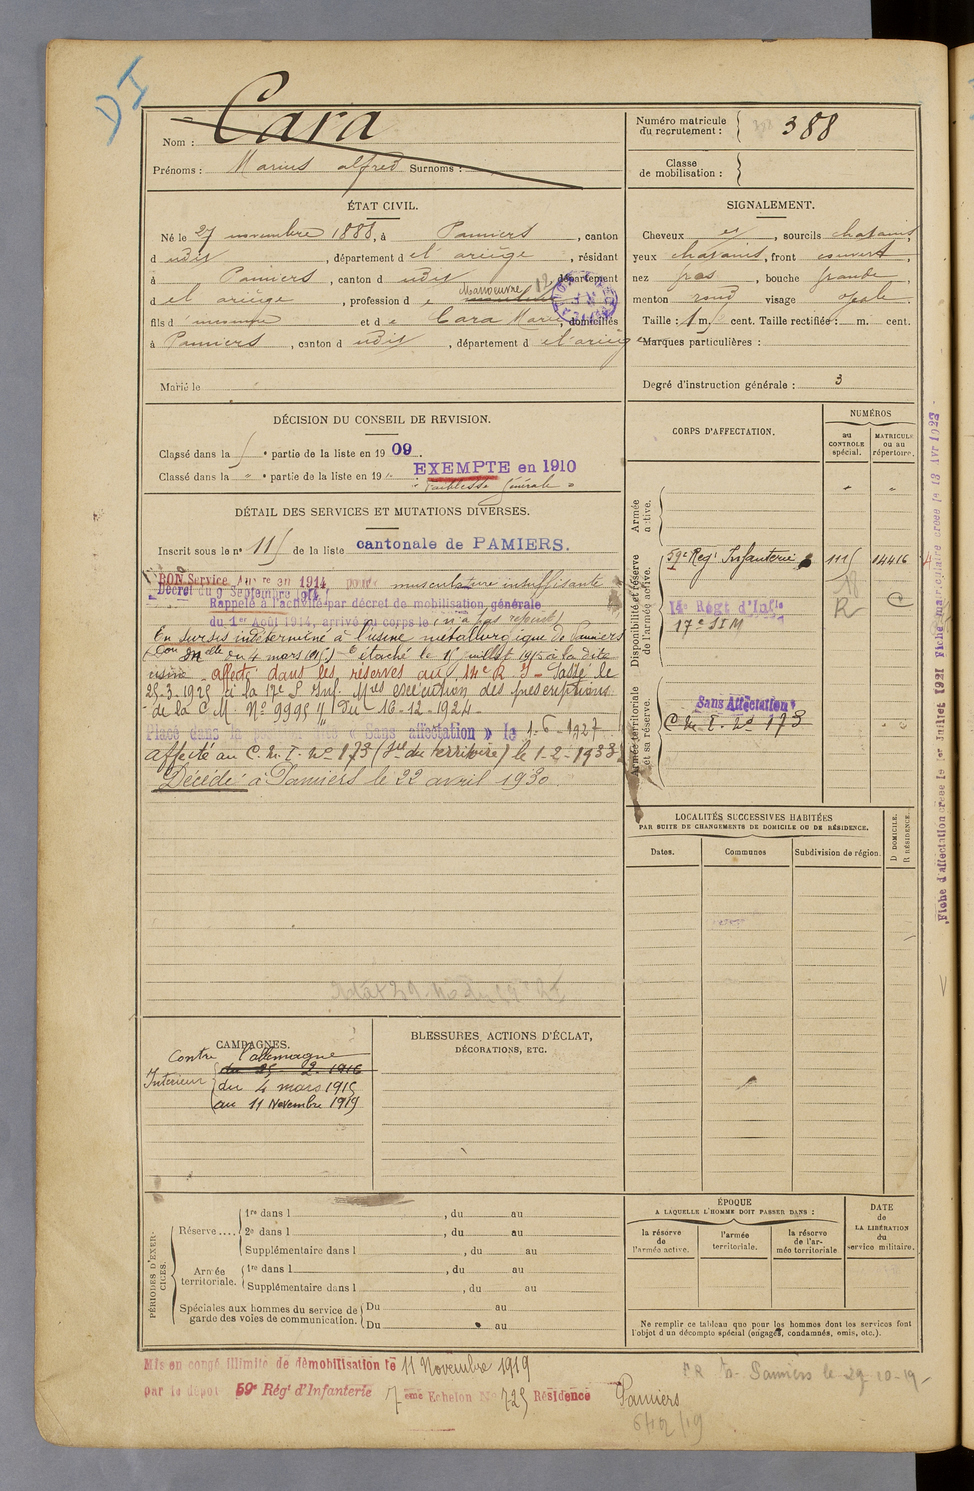 DI
Nom : Cara
Prénoms : Marius alfred Surnoms :
Numéro matricule du recrutement : 388
Classe de mobilisation :
ÉTAT CIVIL.
Né le 27 novembre 1888, à Pamiers, canton
d udit, département de l'ariège, résidant
à Pamiers, canton d udit, département
d el ariège, profession d e Manœuvre 12
fils d et d e Cara Marie, domiciliés
à Pamiers, canton d udit, département d el'ariège
Marié le
SIGNALEMENT.
Cheveux et, sourcils chatains,
yeux chatains, front couvert,
nez gros, bouche grande,
menton rond visage ovale.
Taille : 1 m. cent. Taille rectifiée : m. cent.
Marques particulières :
Degré d'instruction générale : 3
DÉCISION DU CONSEIL DE REVISION.
Classé dans la partie de la liste en 1909.
Classé dans la " partie de la liste en 19 " EXEMPTÉ en 1910
" Faiblesse générale "
DÉTAIL DES SERVICES ET MUTATIONS DIVERSES.
Inscrit sous le n° 11 de la liste cantonale de PAMIERS.
BON Service Auxre en 1914 pour musculature insuffisante
Décret du 9 Septembre 1914
Rappelé à l'activité par décret de mobilisation générale
du 1er Août 1914, arrivé au corps le (n'a pas rejoint)
En sursis indéterminé à l'usine métallurgique de Pamiers
du 4 mars 1915) Détaché le 1r juillet 1915 à la dite
usine - affecté dans les réserves au 14e R. I - Passé le
25-3-1925 à la 17e S. Inf. Mres exécution des prescriptions
de la C.M. N° 9995 Du 16-12-1924 -
Placé dans la « Sans affectation » le 1-6-1927
affecté au C.M.I. N° 173 (Sce du territoire) le 1-2-1933
Décédé à Pamiers le 22 avril 1930.
CORPS D'AFFECTATION.
NUMÉROS
au CONTROLE spécial.
MATRICULE ou au répertoire.
Armée active.
Disponibilité et réserve de l'armée active.
59e Regt Infanterie 111 14416
14e Régt d'Infie
17e SIM
R
C
Armée territoriale et sa réserve.
Sans Affectation
C.M.I. N° 173
LOCALITÉS SUCCESSIVES HABITÉES
PAR SUITE DE CHANGEMENTS DE DOMICILE OU DE RÉSIDENCE.
Dates.
Communes
Subdivision de région.
D DOMICILE.
R RÉSIDENCE.
Fiche d'affectation créée le 1er Juillet 1921 Fiche matriculaire créée le 13 Avr 1923
CAMPAGNES.
Contre l'allemagne
du 25 2 1916
Intérieur du 4 mars 1915
au 11 Novembre 1919
BLESSURES, ACTIONS D'ÉCLAT,
DÉCORATIONS, ETC.
PÉRIODES D'EXERCICES.
Réserve....
1re dans l , du au
2e dans l , du au
Supplémentaire dans l , du au
Armée territoriale.
1re dans l , du au
Supplémentaire dans l , du au
Spéciales aux hommes du service de garde des voies de communication.
Du au
Du au
ÉPOQUE
A LAQUELLE L'HOMME DOIT PASSER DANS :
la réserve de l'armée active.
l'armée territoriale.
la réserve de l'armée territoriale
DATE de LA LIBÉRATION du service militaire.
Ne remplir ce tableau que pour les hommes dont les services font
l'objet d'un décompte spécial (engagés, condamnés, omis, etc.).
Mis en congé illimité de démobilisation le 11 Novembre 1919
par le dépôt 59e Régt d'Infanterie 7ème Echelon No 725 Résidence Pamiers
Pamiers le 29-10-19-